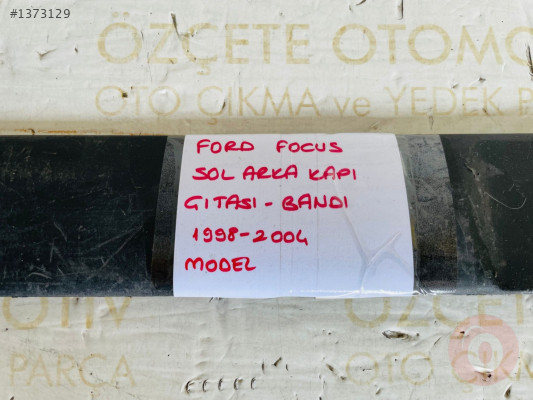 #1373129
ÖZÇETE OTOMO
OTO ÇIKMA ve YEDEK P
FORD FOCUS
SOL ARKA KAPI
GITASI - BANDI
1998-2004
MODEL
OTİV
ÖZÇETE
PARÇA
OTO ÇIKMA